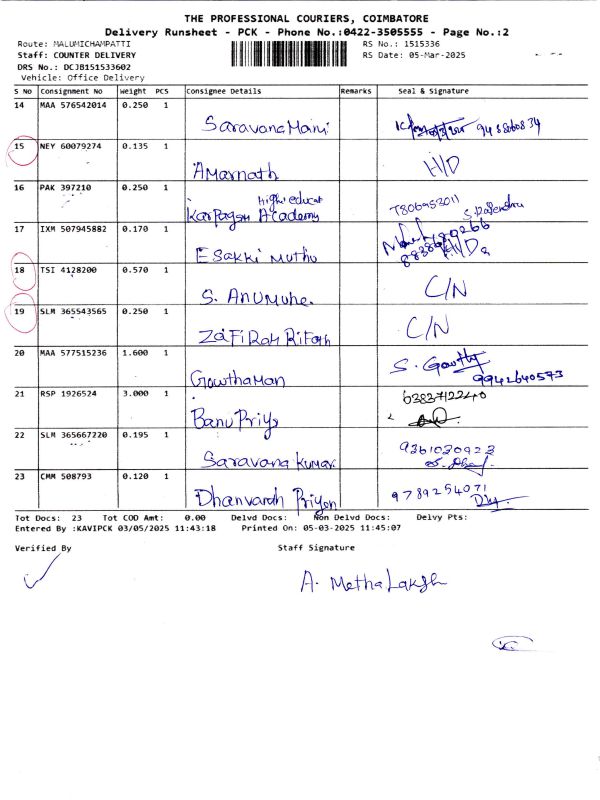 THE PROFESSIONAL COURIERS, COIMBATORE
Delivery Runsheet - PCK - Phone No.:0422-3505555 - Page No.:2
Route: MALUMICHAMPATTI
RS No.: 1515336
Staff: COUNTER DELIVERY
RS Date: 05-Mar-2025
DRS No.: DCJB151533602
Vehicle: Office Delivery
S NO Consignment No Weight PCS Consignee Details Remarks Seal & Signature
14 MAA 576542014 0.250 1 Saravana Mani
15 NEY 60079274 0.135 1 Amarnath H/D
16 PAK 397210 0.250 1 Karpagam Academy 7806953011
17 IXM 507945882 0.170 1 Esakki Muthu
18 TSI 4128200 0.570 1 S. C/N
19 SLM 365543565 0.250 1 C/N
20 MAA 577515236 1.600 1 Gowthaman 9942640573
21 RSP 1926524 3.000 1 Banu Priya 6383712240
22 SLM 365667220 0.195 1 Saravana Kumar 9361030923
23 CMM 508793 0.120 1 9789254071
Tot Docs: 23 Tot COD Amt: 0.00 Delvd Docs: Non Delvd Docs: Delvy Pts:
Entered By :KAVIPCK 03/05/2025 11:43:18 Printed On: 05-03-2025 11:45:07
Verified By Staff Signature
A.